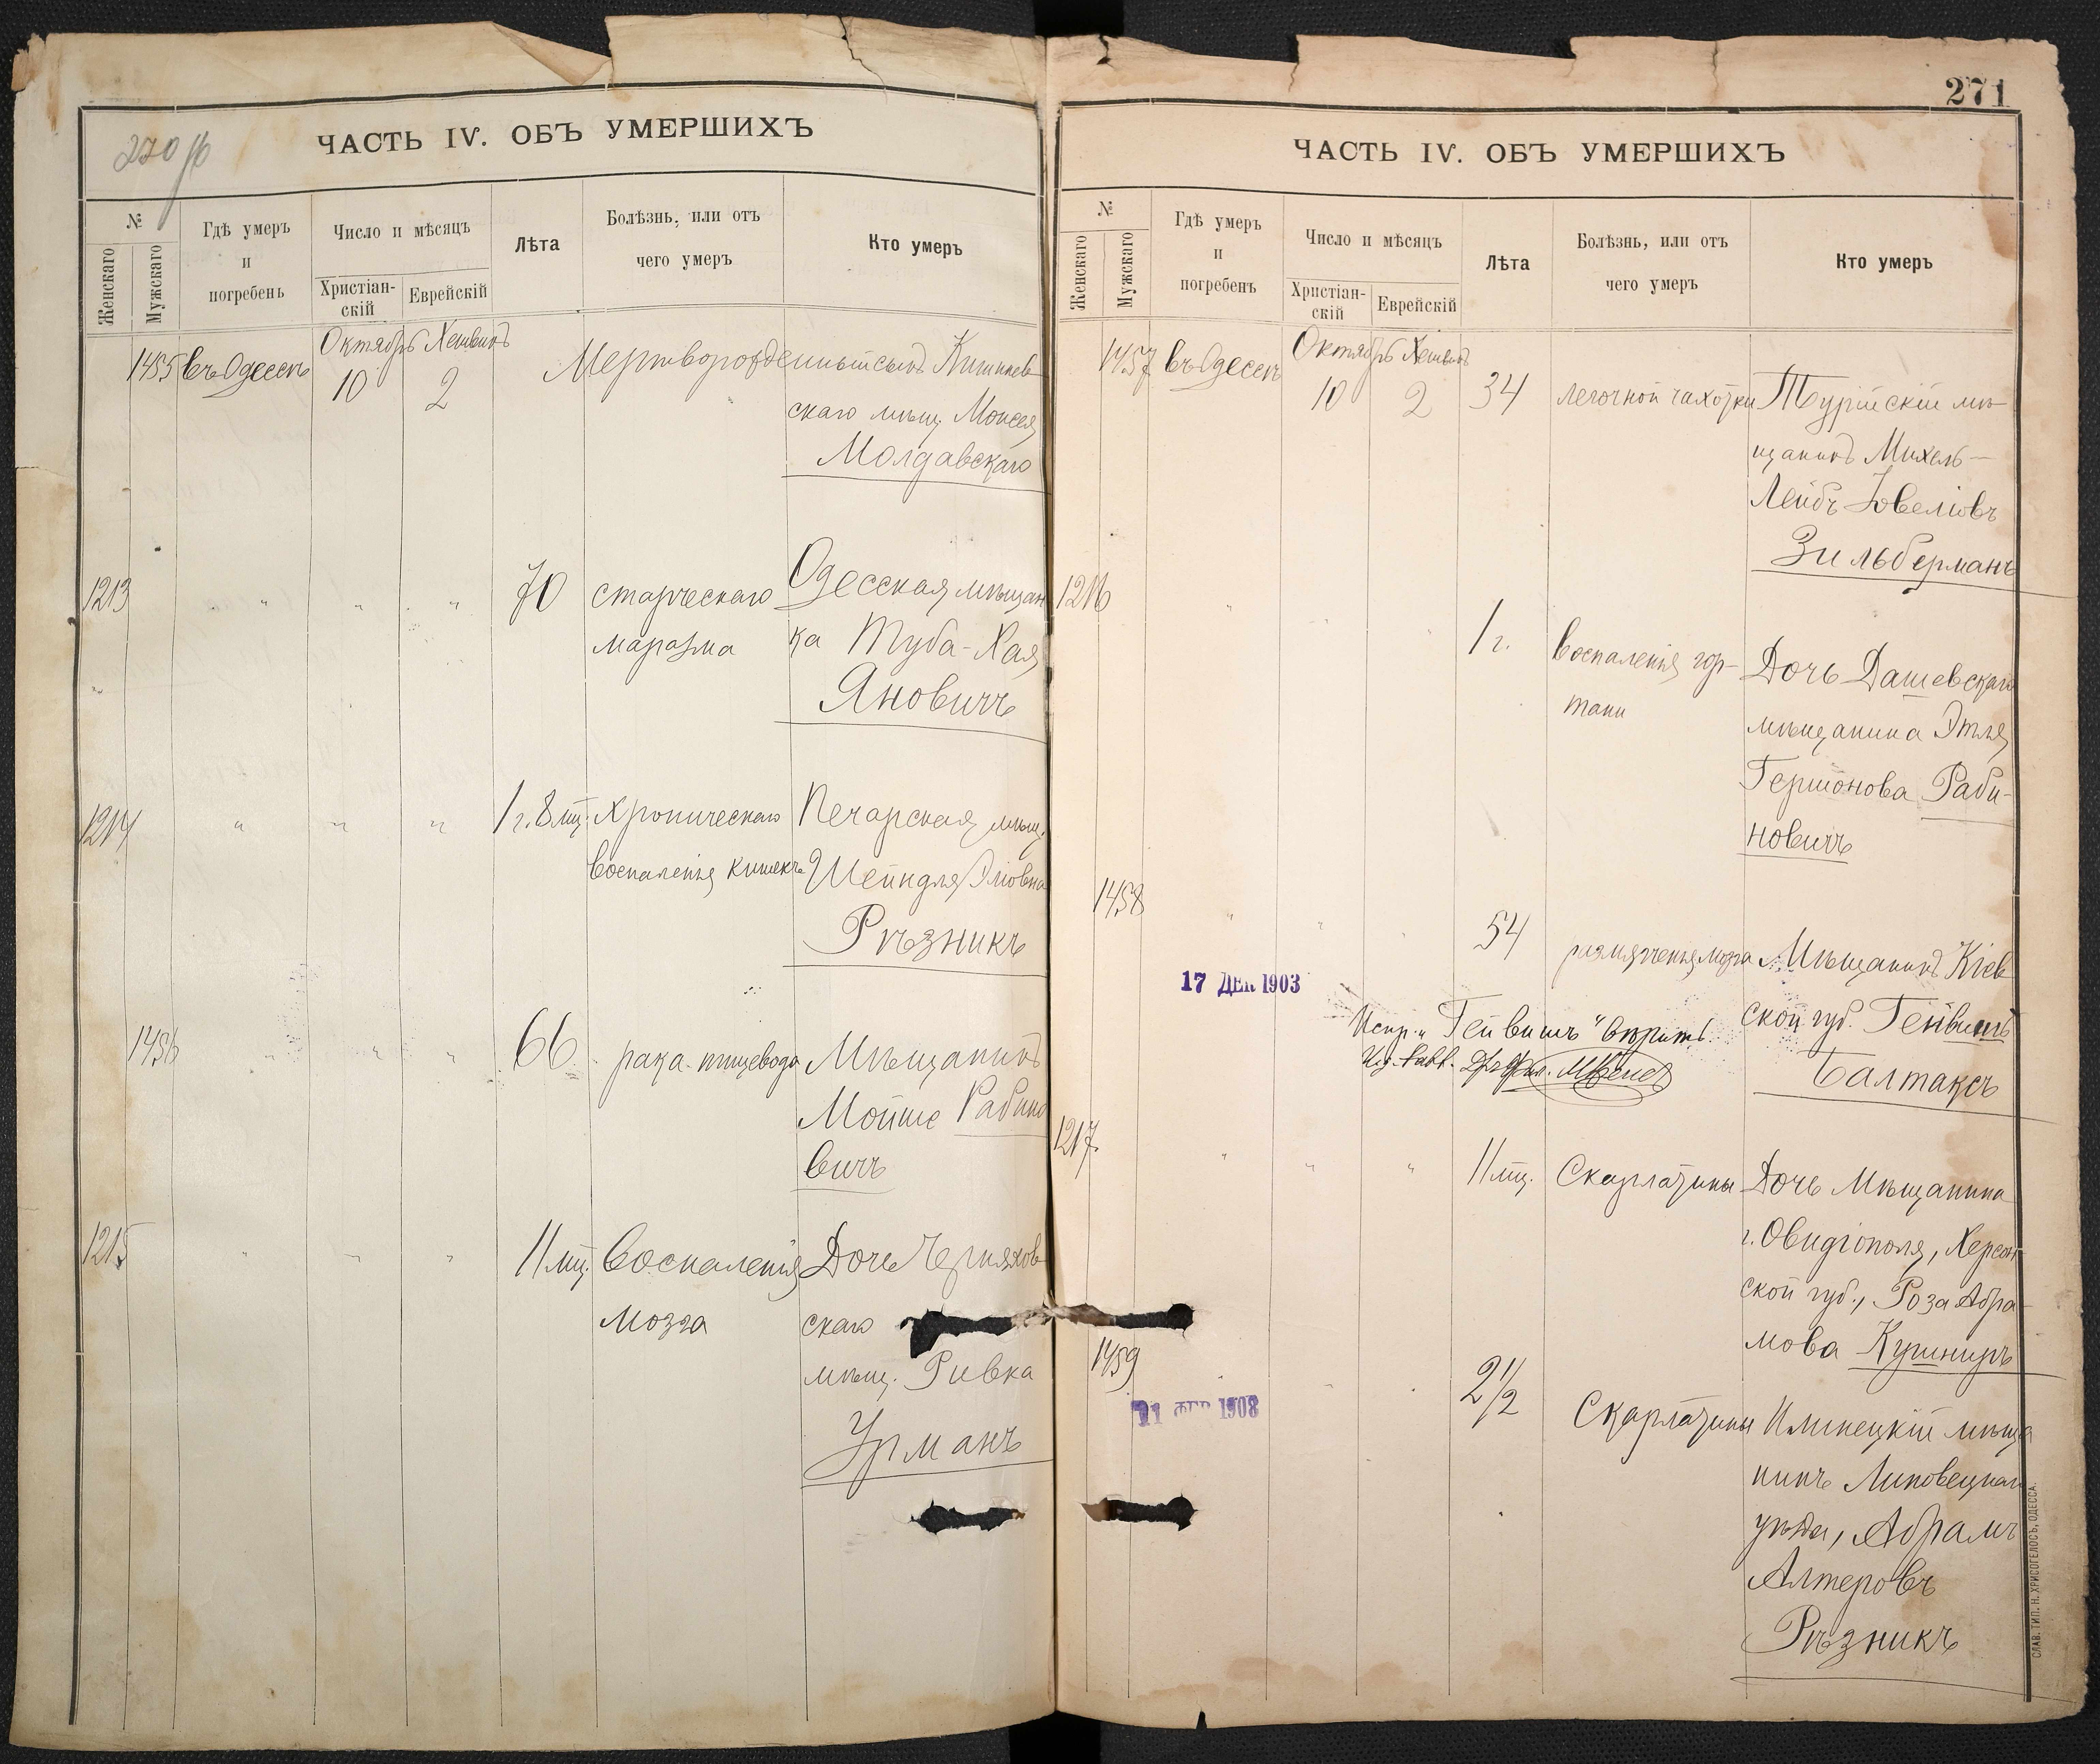 270 об
ЧАСТЬ IV. ОБЪ УМЕРШИХЪ
№
Женскаго
Мужскаго
Гдѣ умеръ
и
погребенъ
Число и мѣсяцъ
Христіан-
скій
Еврейскій
Лѣта
Болѣзнь, или отъ
чего умеръ
Кто умеръ
Октябрь Хешванъ
1455 въ Одессѣ 10 2 Мертворожденный сынъ Кишинев-
скаго мѣщ. Моисея
Молдавскаго
1213 " " " 70 старческаго Одесская мѣщан
маразма ка Туба-Хая
Яновичъ
1214 " " " 1 г. 8 мц. Хроническаго Печарская мѣщ.
воспаленія кишекъ Шейндля Эліовна
Рѣзникъ
1456 " " " 66 рака пищевода Мѣщанинъ
Мойше Рабино
вичъ
1215 " " " 11 мц. Воспаленія Дочь Черняхов-
мозга скаго
мѣщ. Ривка
Урманъ
271
ЧАСТЬ IV. ОБЪ УМЕРШИХЪ
№
Женскаго
Мужскаго
Гдѣ умеръ
и
погребенъ
Число и мѣсяцъ
Христіан-
скій
Еврейскій
Лѣта
Болѣзнь, или отъ
чего умеръ
Кто умеръ
Октябрь Хешванъ
1457 въ Одессѣ 10 2 34 легочной чахотки Турійскій мѣ-
щанинъ Михель-
Лейбъ Іовеліовъ
Зильберманъ
1216 " " " 1 г. воспаленія гор- Дочь Дашевскаго
тани мѣщанина Этля
Гершонова Раби-
новичъ
1458 " " " 54 размягченія мозга Мѣщанинъ Кіев
17 ДЕК 1903
ской губ. Гейвишъ
Испр. "Гейвишъ" вѣрить.
Балтаксъ
1217 " " " 11 мц. Скарлатины Дочь Мѣщанина
г. Овидіополя, Херсон-
ской губ., Роза Абра-
мова Кушниръ
1459 " " " 2 1/2 Скарлатины Илинецкій мѣща
21 ФЕВ 1908
нинъ Липовецкаго
уѣзда, Абрамъ
Алтеровъ
Рѣзникъ
СЛАВ. ТИП. Н. ХРИСОГЕЛОСЪ, ОДЕССА.